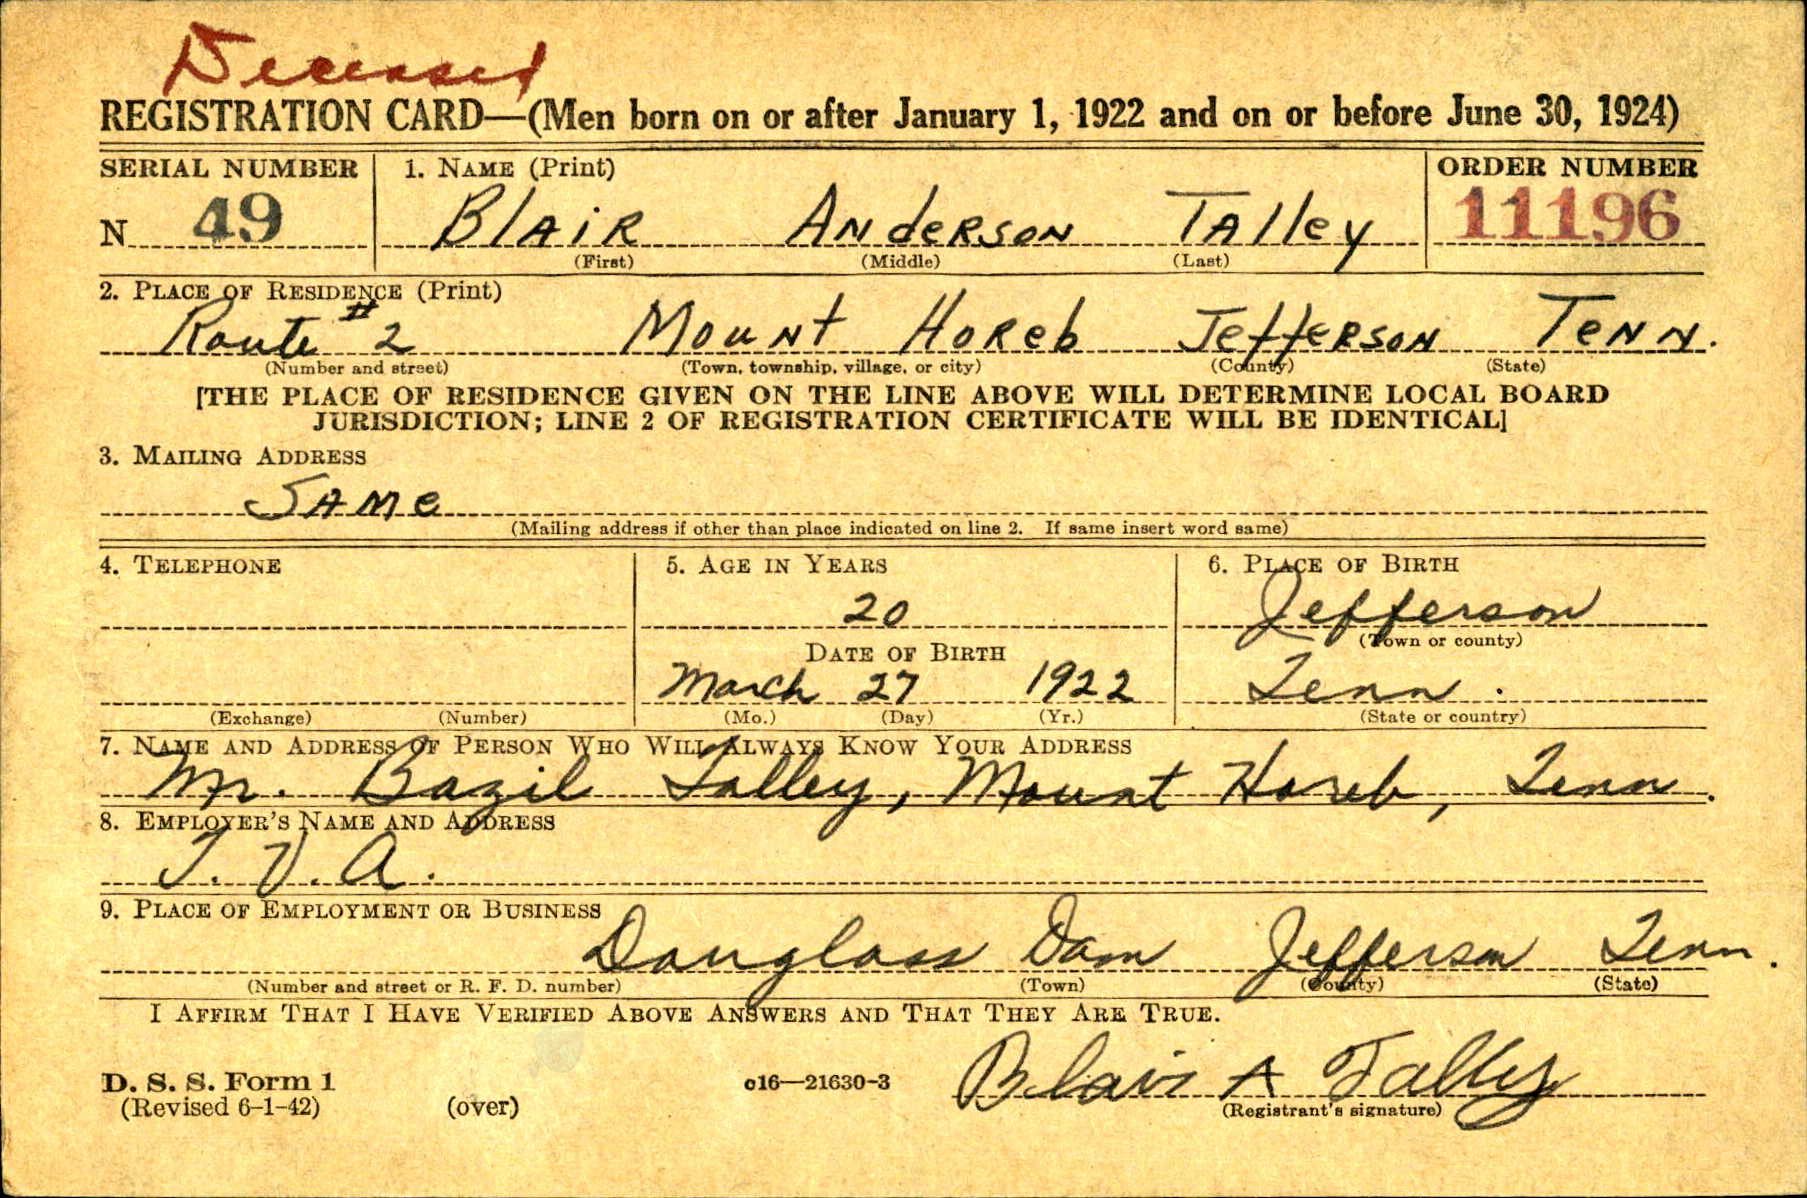 Deceased
REGISTRATION CARD—(Men born on or after January 1, 1922 and on or before June 30, 1924)
SERIAL NUMBER 1. NAME (Print) ORDER NUMBER
N 49 BLAIR ANDERSON TALLEY 11196
(First) (Middle) (Last)
2. PLACE OF RESIDENCE (Print)
Route #2 MOUNT HOREB JEFFERSON TENN.
(Number and street) (Town, township, village, or city) (County) (State)
[THE PLACE OF RESIDENCE GIVEN ON THE LINE ABOVE WILL DETERMINE LOCAL BOARD
JURISDICTION; LINE 2 OF REGISTRATION CERTIFICATE WILL BE IDENTICAL]
3. MAILING ADDRESS
SAME
(Mailing address if other than place indicated on line 2. If same insert word same)
4. TELEPHONE 5. AGE IN YEARS 6. PLACE OF BIRTH
20 Jefferson
(Town or county)
DATE OF BIRTH
March 27 1922 Tenn.
(Exchange) (Number) (Mo.) (Day) (Yr.) (State or country)
7. NAME AND ADDRESS OF PERSON WHO WILL ALWAYS KNOW YOUR ADDRESS
Mr. Bazil Talley, Mount Horeb, Tenn.
8. EMPLOYER'S NAME AND ADDRESS
T.V.A.
9. PLACE OF EMPLOYMENT OR BUSINESS
Douglass Dam Jefferson Tenn.
(Number and street or R. F. D. number) (Town) (County) (State)
I AFFIRM THAT I HAVE VERIFIED ABOVE ANSWERS AND THAT THEY ARE TRUE.
Blair A Talley
D. S. S. Form 1 c16—21630-3
(Revised 6-1-42) (over) (Registrant's signature)